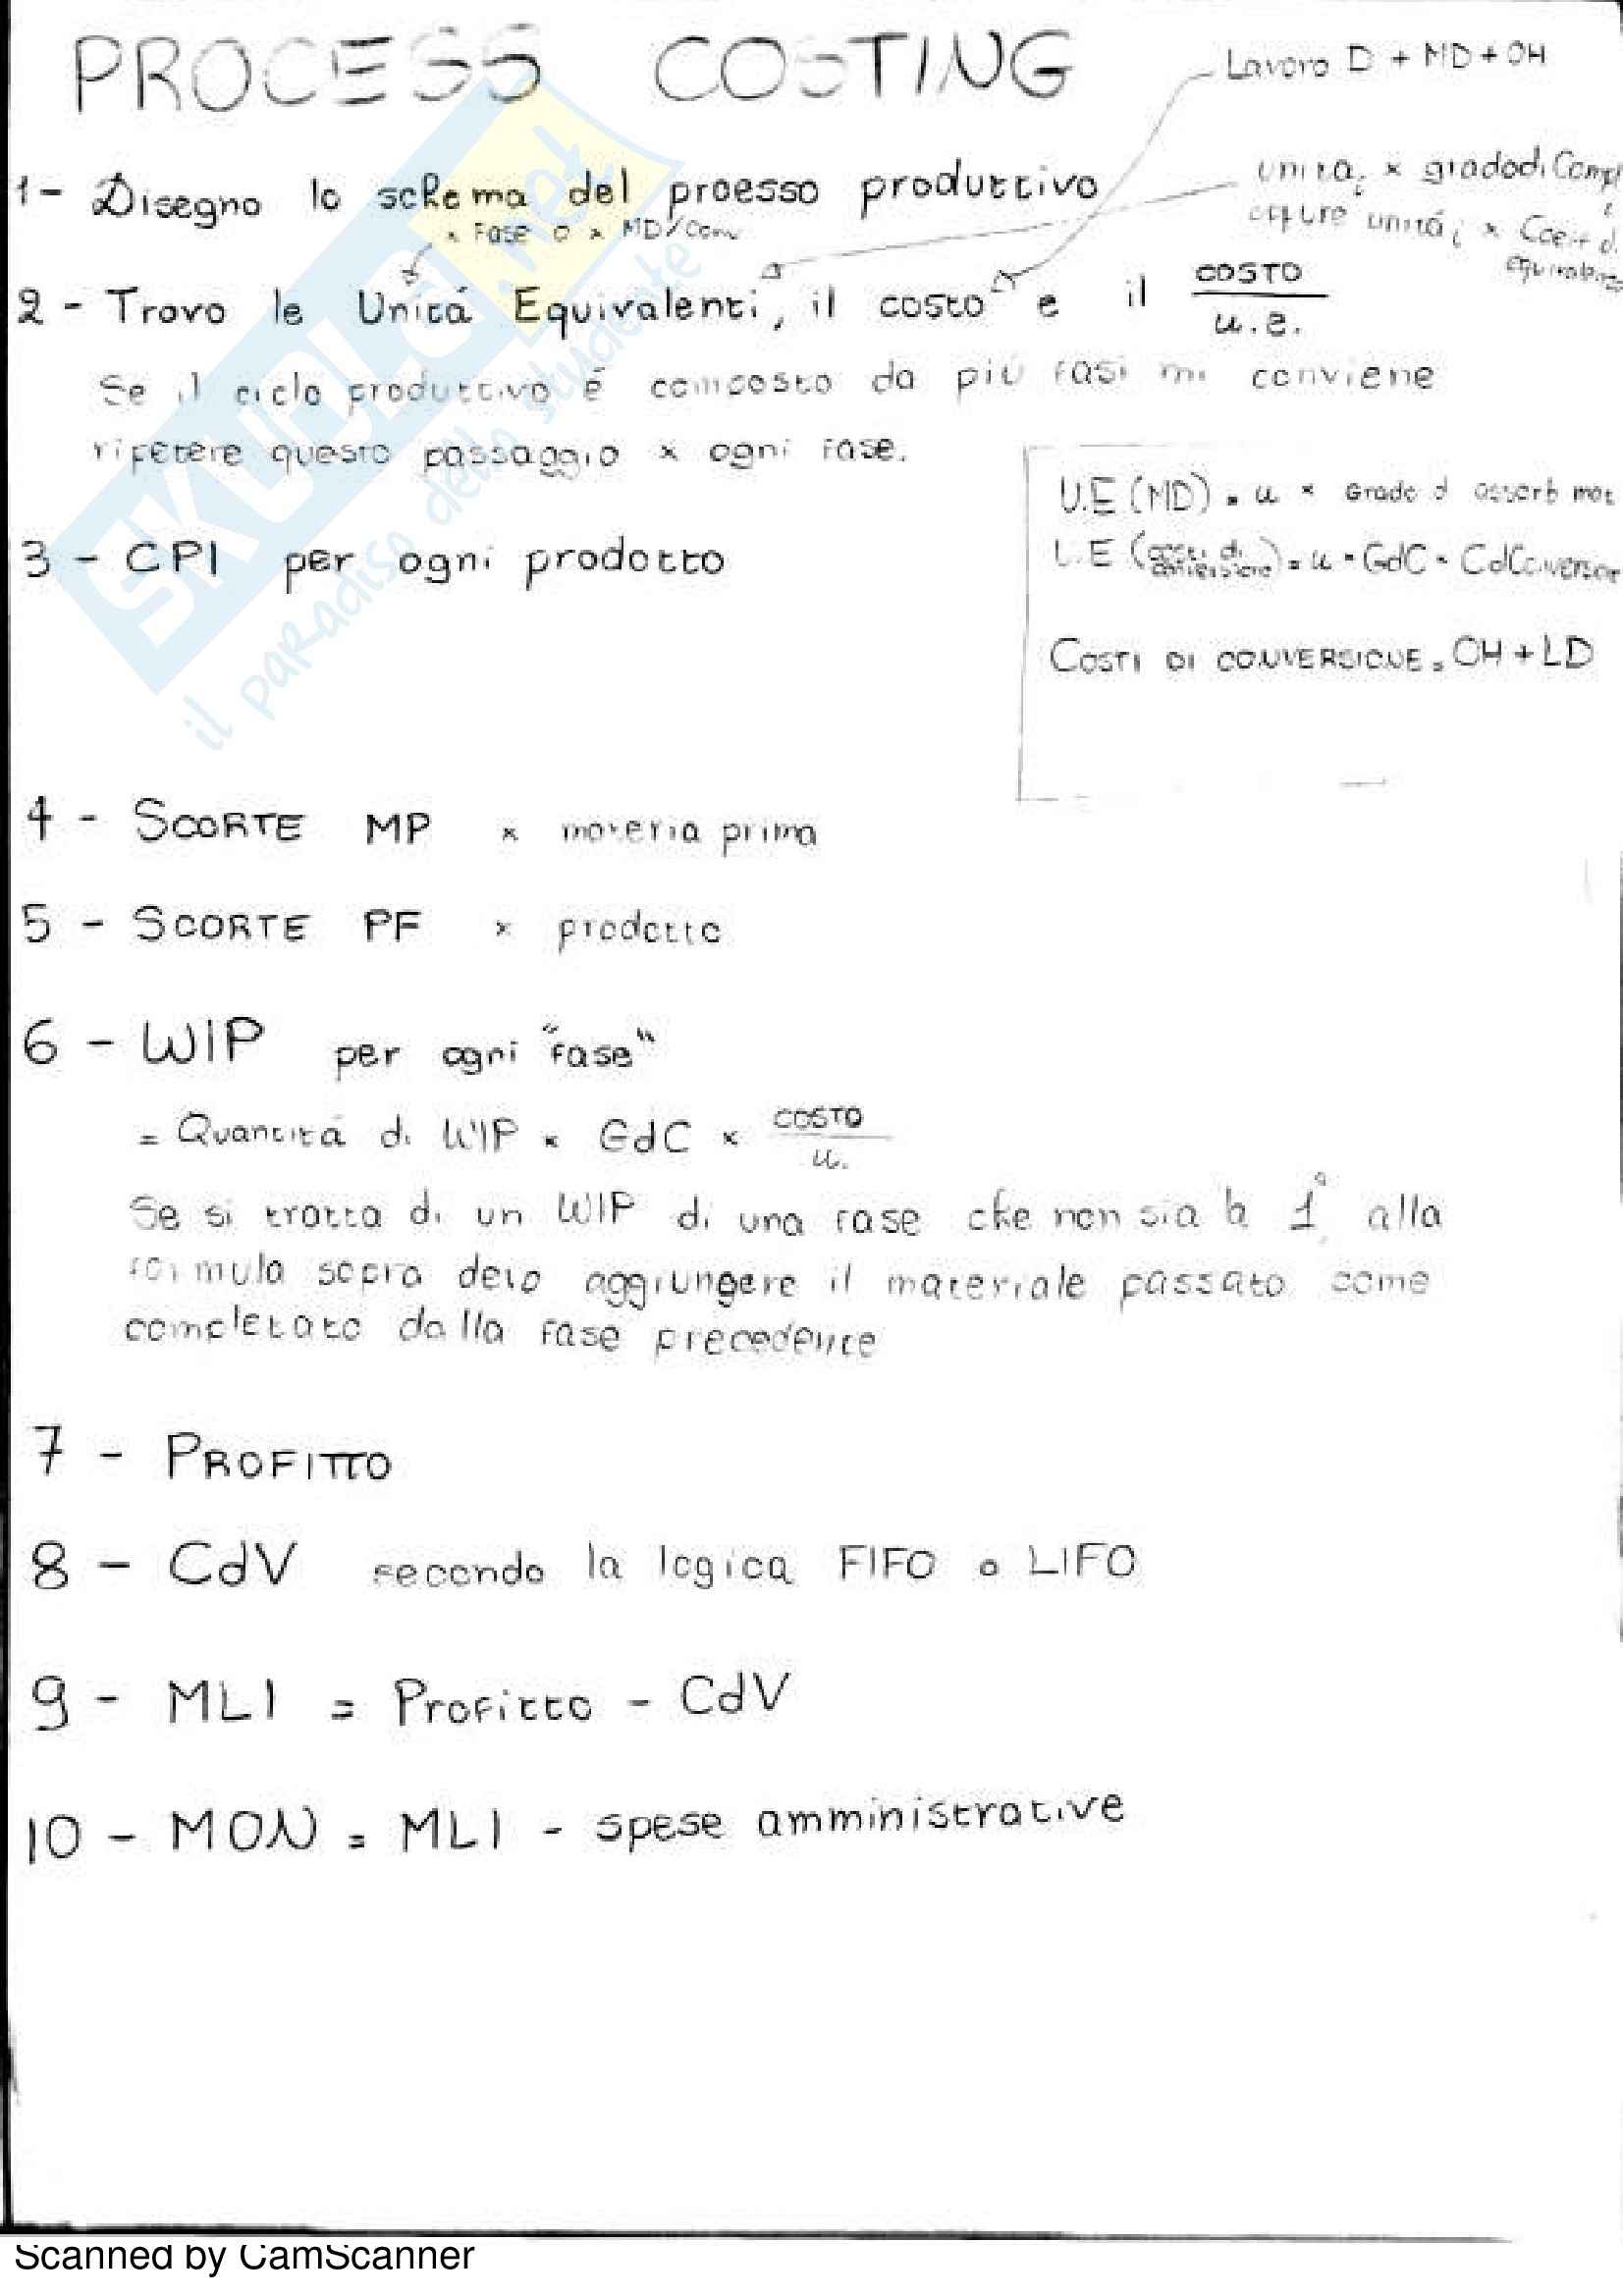 PROCESS COSTING
Lavoro D + MD + OH
1 - Disegno lo schema del proesso produttivo
unità i × grado di Compl
oppure unità i × Coeff d.
equivalenza
× Fase o × MD/Conv
2 - Trovo le Unitá Equivalenti, il costo e il COSTO / u.e.
Se il ciclo produttivo é composto da più fasi mi conviene
ripetere questo passaggio × ogni fase.
U.E (MD) = u × Grado d assorb mat
U.E (costi di conversione) = u × GdC × CdConversione
COSTI DI CONVERSIONE = OH + LD
3 - CPI per ogni prodotto
4 - SCORTE MP × materia prima
5 - SCORTE PF × prodotto
6 - WIP per ogni "fase"
= Quantitá di WIP × GdC × COSTO / u.
Se si tratta di un WIP di una fase che non sia la 1ª alla
formula sopra devo aggiungere il materiale passato come
completato dalla fase precedente
7 - PROFITTO
8 - CdV secondo la logica FIFO o LIFO
9 - MLI = Profitto - CdV
10 - MON = MLI - spese amministrative
SKUOLA.net
il paradiso dello studente
Scanned by CamScanner